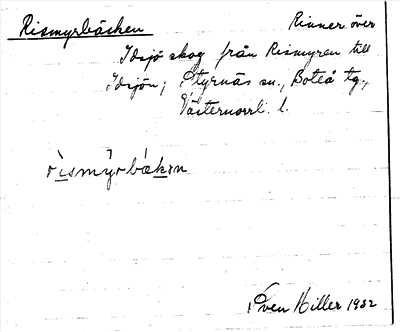 Rismyrbäcken Rinner över
Idsjö skog från Rismyren till
Idsjön; Styrnäs sn., Boteå tg.,
Västernorrl. l.
rìsmy̆rbákən
Sven Hiller 1932